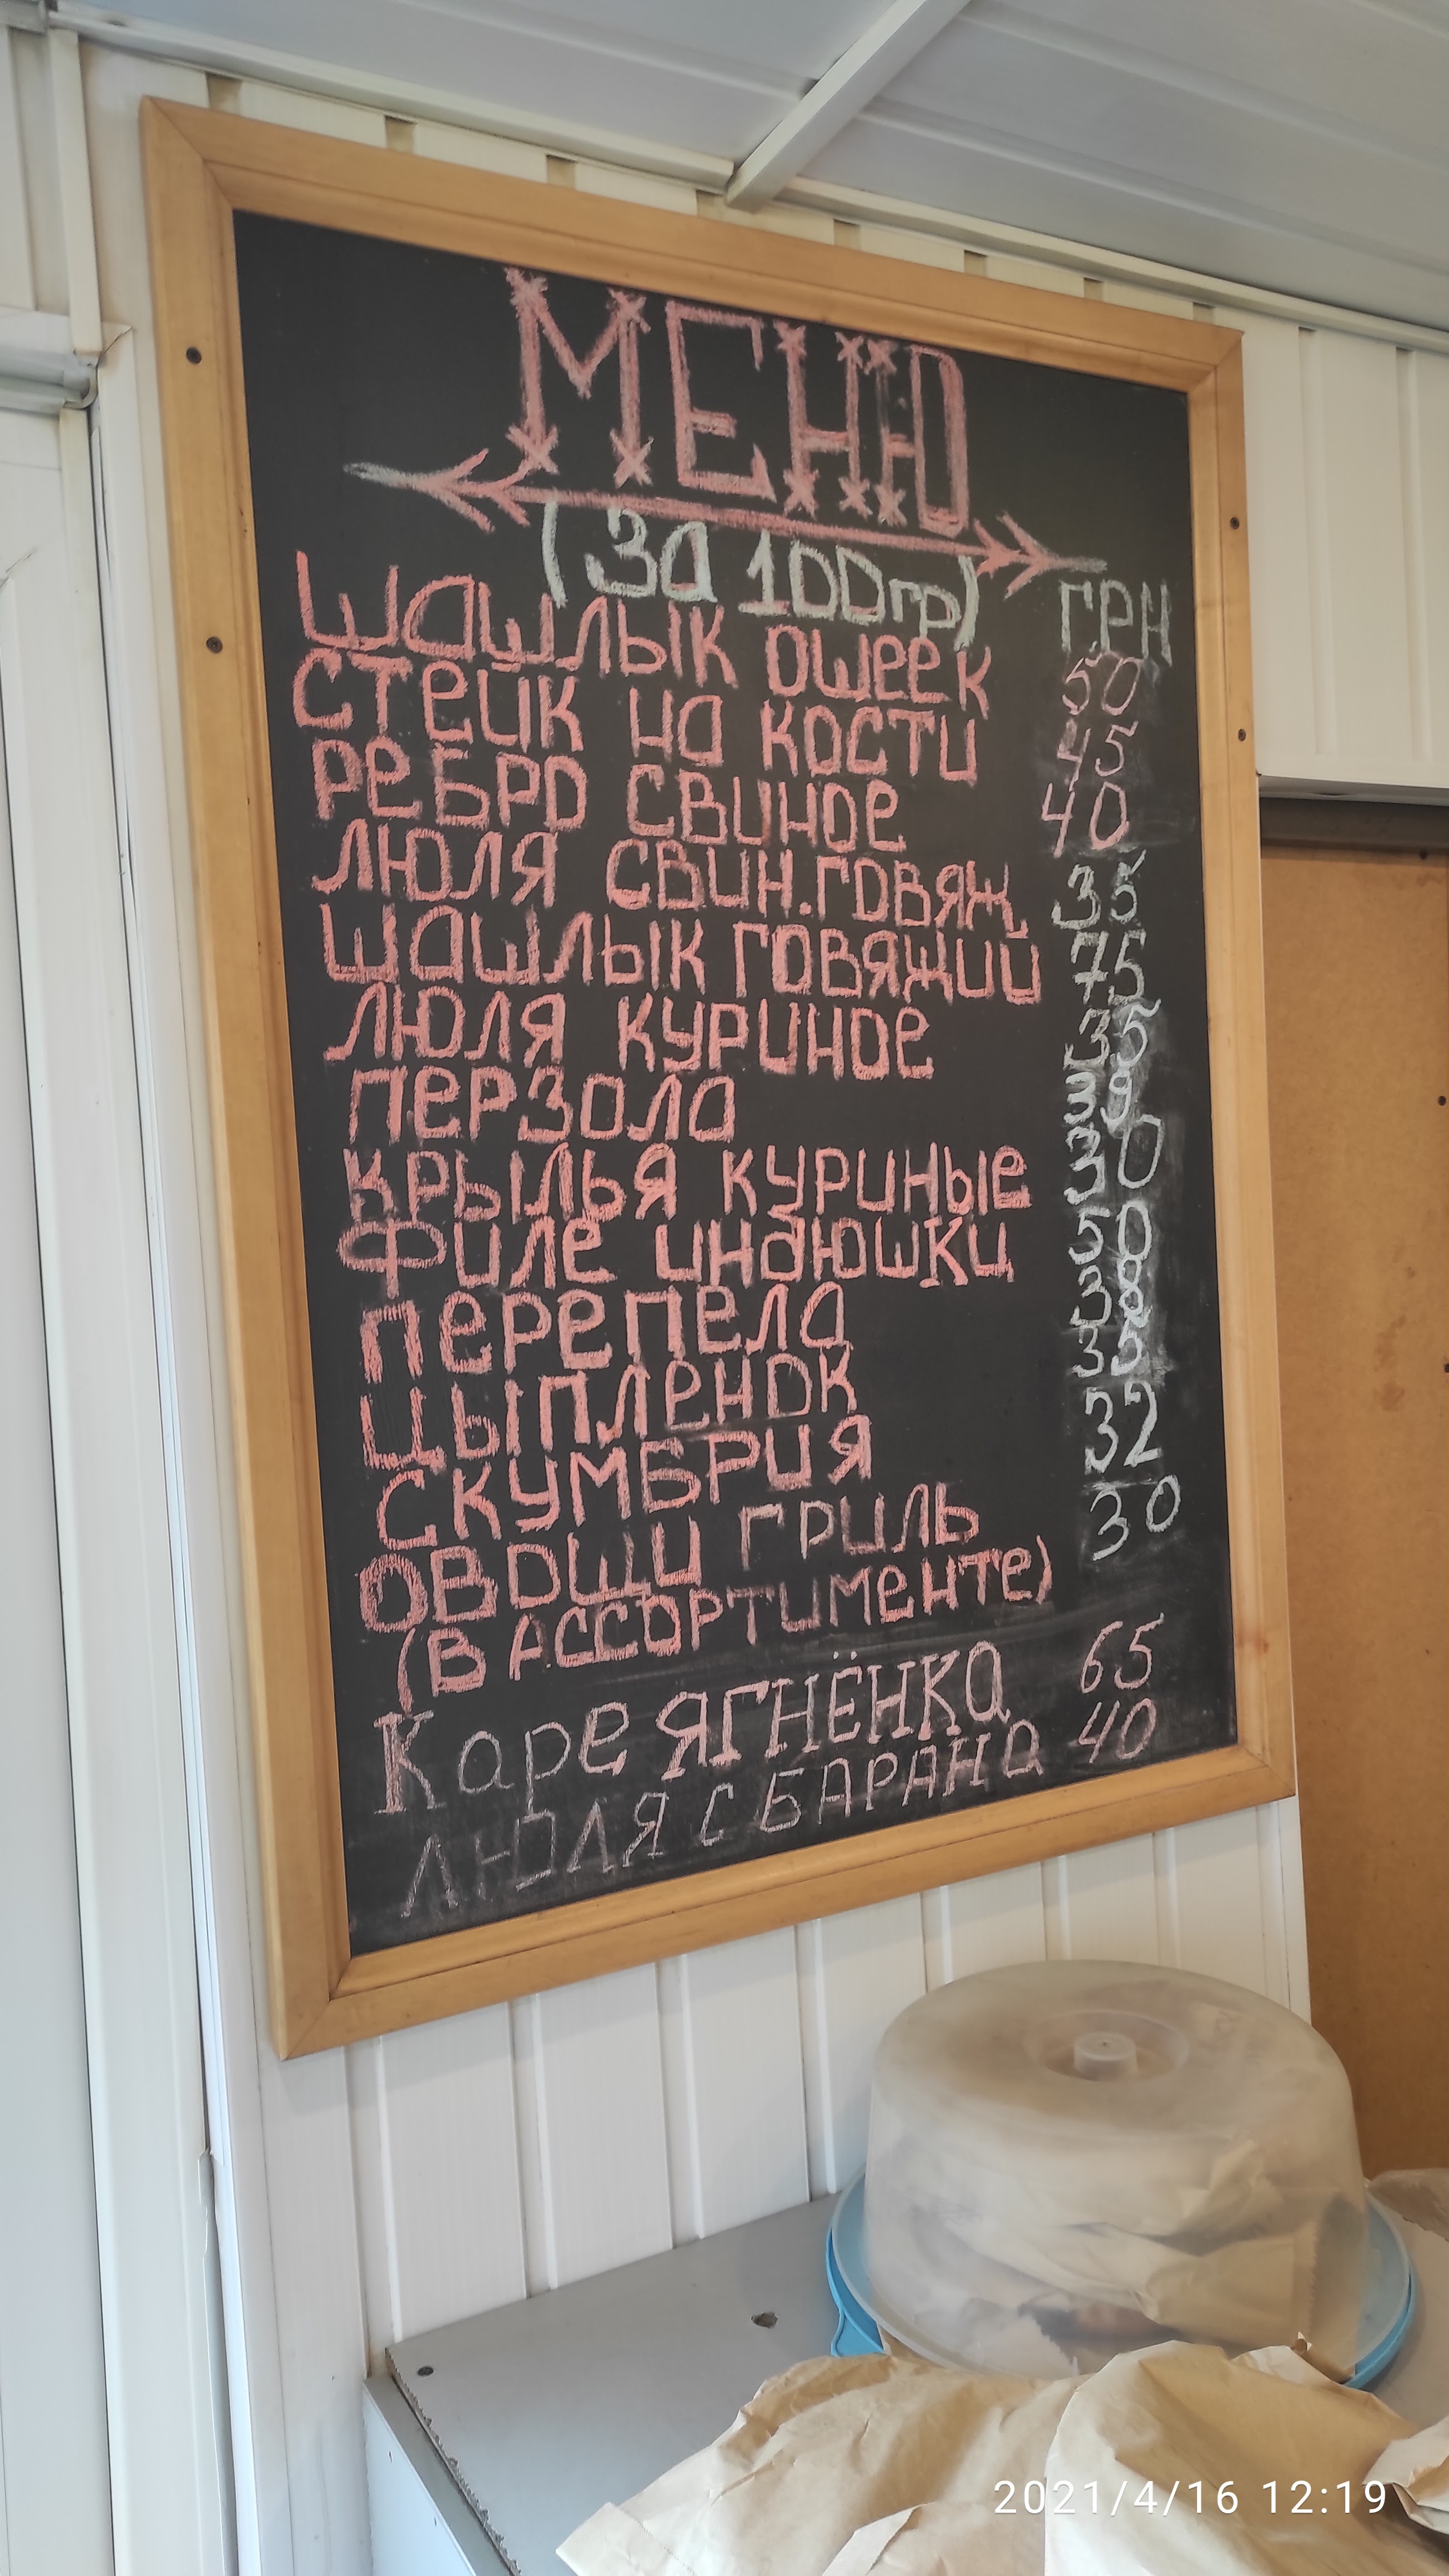 МЕНЮ
(за 100гр)
грн
шашлык ошеек 50
стейк на кости 45
ребро свиное 40
люля свин.говяж. 35
шашлык говяжий 75
люля куриное 35
перзола 39
крылья куриные 30
филе индюшки 50
перепела 38
цыпленок 35
скумбрия 32
овощи гриль 30
(в ассортименте)
Каре ЯГНЁНКА 65
ЛЮЛЯ С БАРАНА 40
2021/4/16 12:19